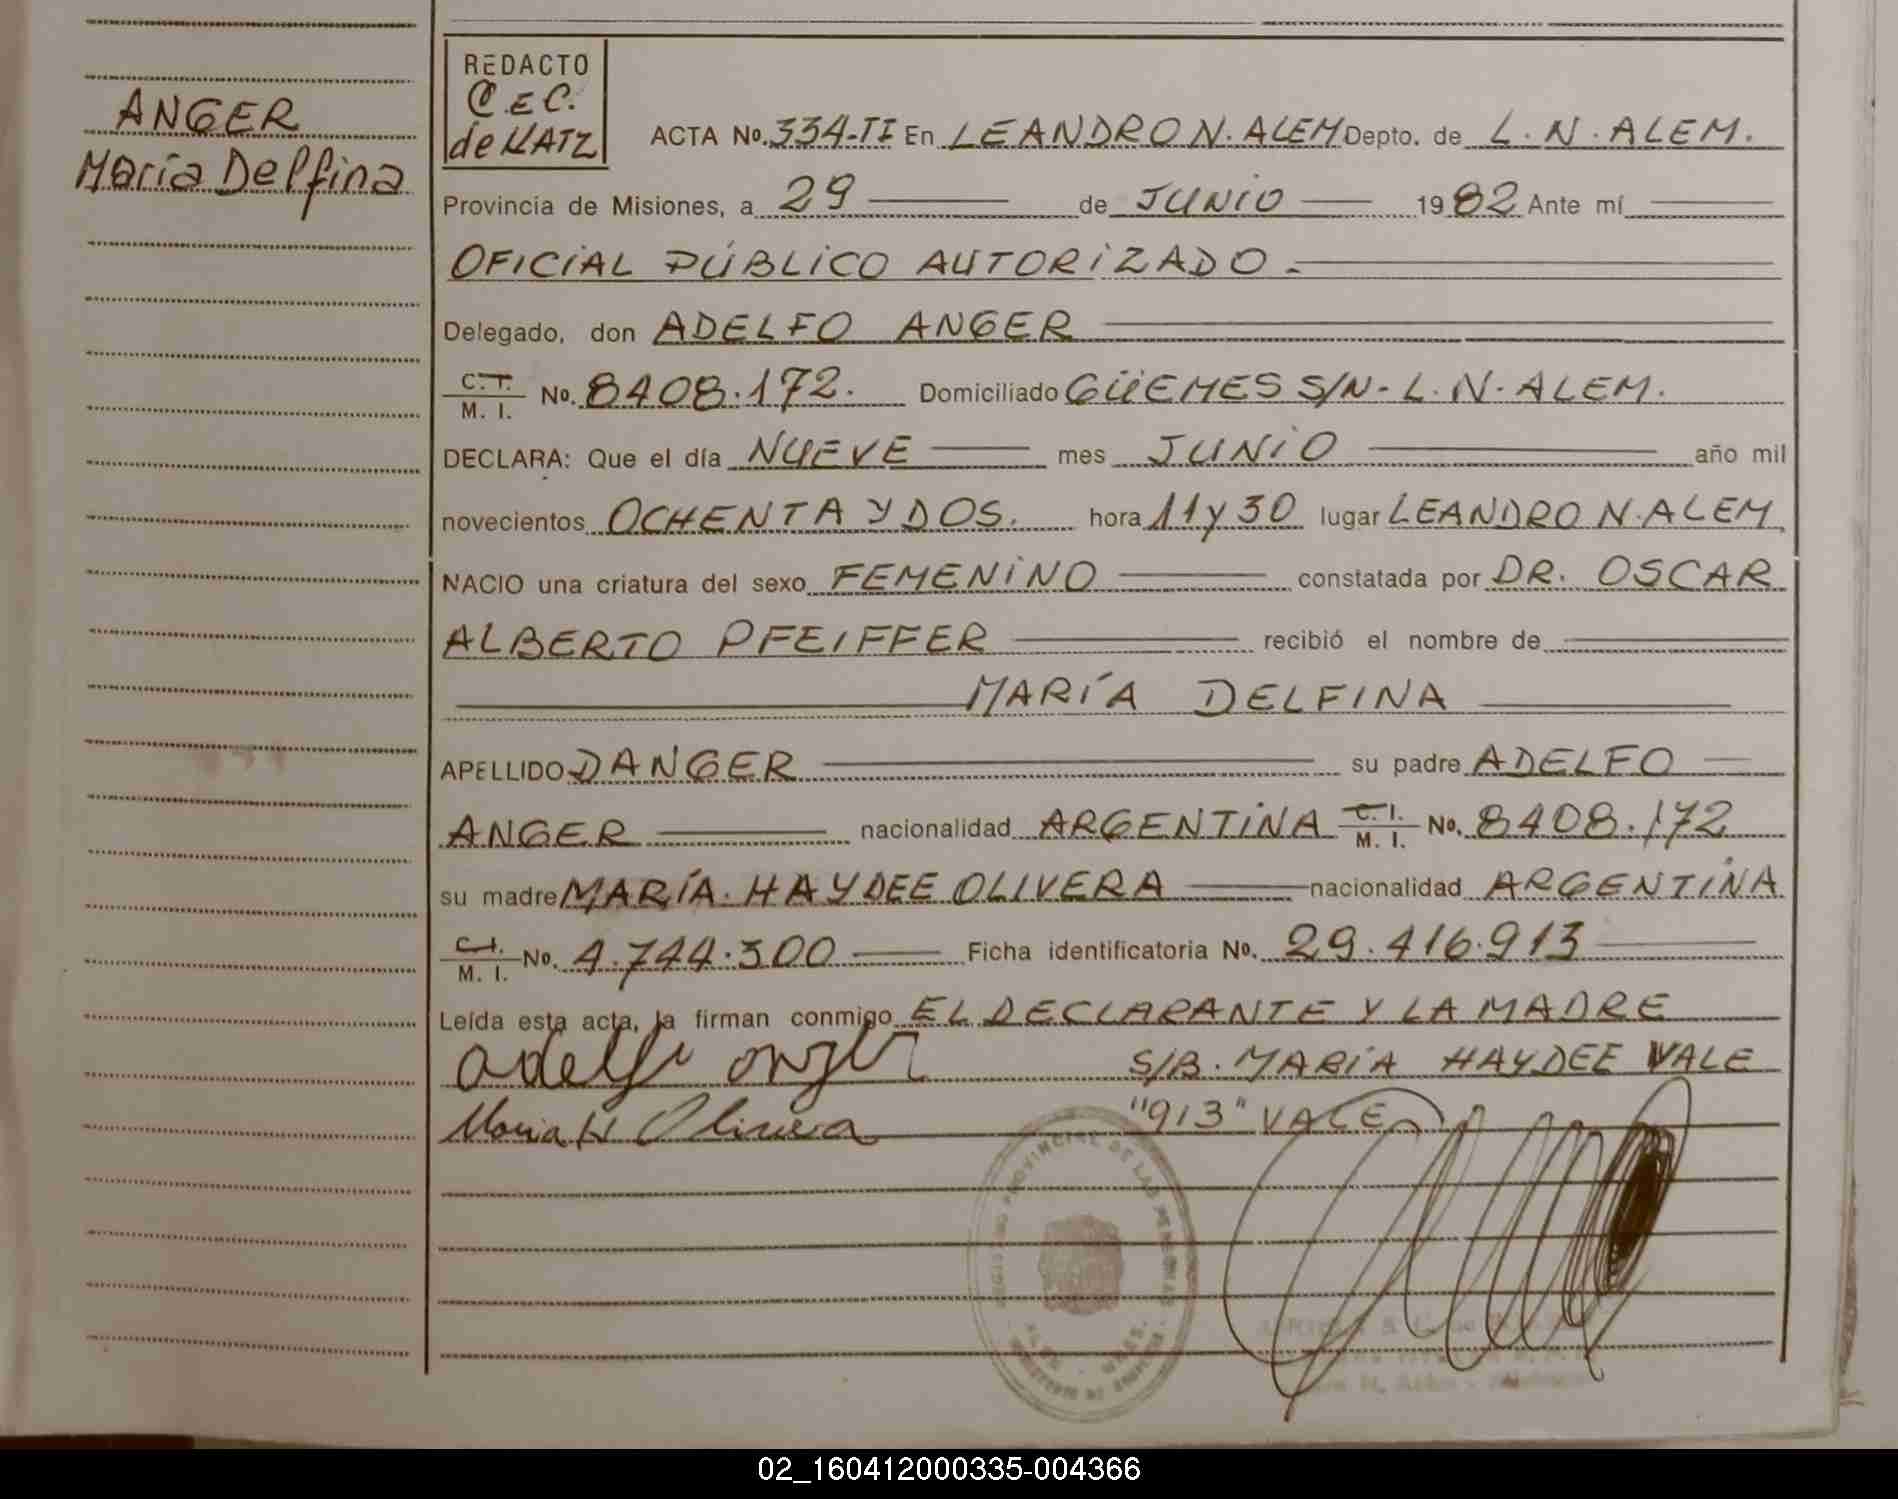 ANGER
María Delfina
REDACTO
C. E C.
de KATZ
ACTA No. 334-TI En LEANDRO N. ALEM Depto. de L. N. ALEM.
Provincia de Misiones, a 29 de JUNIO 1982 Ante mí
OFICIAL PÚBLICO AUTORIZADO.
Delegado, don ADELFO ANGER
C. I.
M. I. No. 8408.172. Domiciliado GÜEMES S/N- L. N. ALEM.
DECLARA: Que el día NUEVE mes JUNIO año mil
novecientos OCHENTA Y DOS. hora 11 y 30 lugar LEANDRO N. ALEM,
NACIO una criatura del sexo FEMENINO constatada por DR. OSCAR
ALBERTO PFEIFFER recibió el nombre de
MARÍA DELFINA
APELLIDO DANGER su padre ADELFO
ANGER nacionalidad ARGENTINA C. I. M. I. No. 8408.172
su madre MARÍA HAYDEE OLIVERA nacionalidad ARGENTINA
C. I.
M. I. No. 4.744.300 Ficha identificatoria No. 29.416.913
Leída esta acta, la firman conmigo EL DECLARANTE Y LA MADRE
S/B. MARÍA HAYDEE VALE
Maria H Olivera "913" VALE
REGISTRO PROVINCIAL DE LAS PERSONAS
02_160412000335-004366